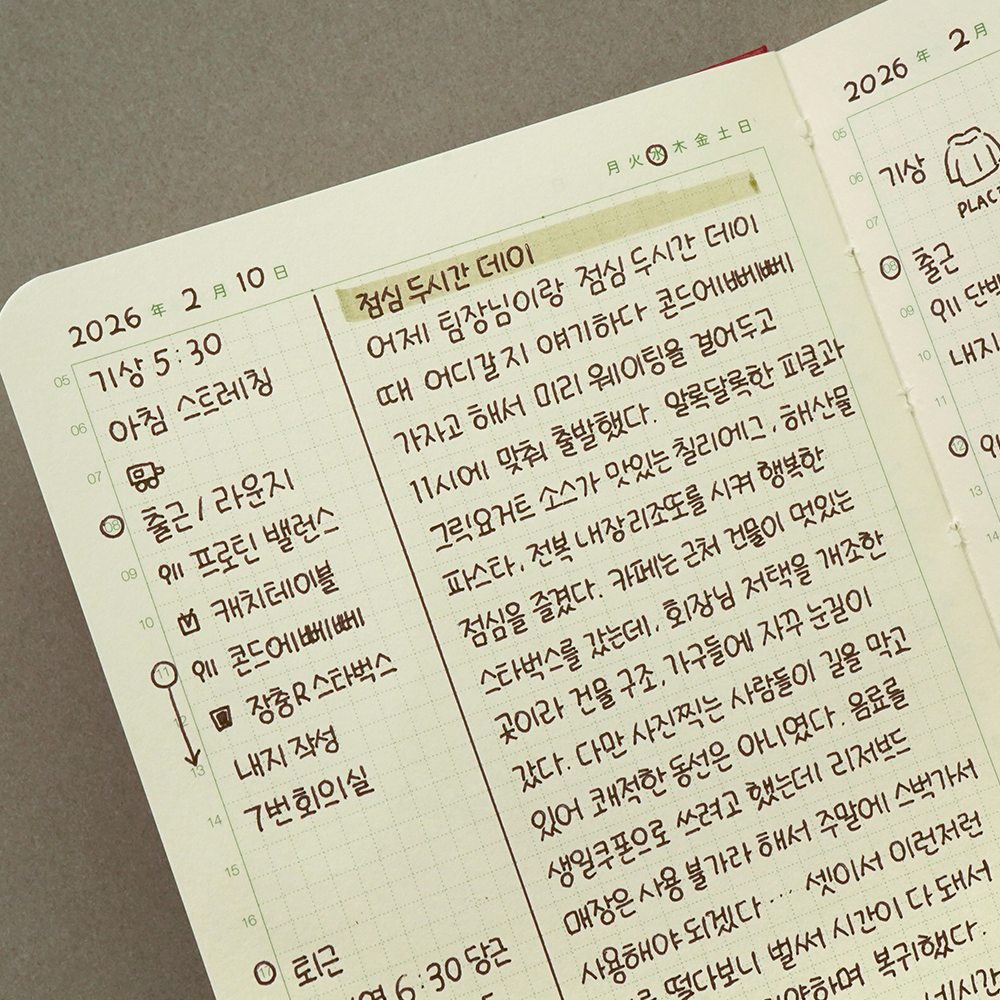 2026 年 2 月 10 日
月 火 水 木 金 土 日
05
기상 5:30
06
아침 스트레칭
07
08
출근 / 라운지
09
위 프로틴 밸런스
10
캐치테이블
11
위 콘드에뻬뻬
12
장충R스타벅스
13
내지 작성
14
7번 회의실
15
16
17
퇴근
6:30 당근
점심 두시간 데이
어제 팀장님이랑 점심 두시간 데이
때 어디갈지 얘기하다 콘드에뻬뻬
가자고 해서 미리 웨이팅을 걸어두고
11시에 맞춰 출발했다. 알록달록한 피클과
그릭요거트 소스가 맛있는 칠리에그, 해산물
파스타, 전복 내장리조또를 시켜 행복한
점심을 즐겼다. 카페는 근처 건물이 멋있는
스타벅스를 갔는데, 회장님 저택을 개조한
곳이라 건물 구조, 가구들에 자꾸 눈길이
갔다. 다만 사진찍는 사람들이 길을 막고
있어 쾌적한 동선은 아니였다. 음료를
생일쿠폰으로 쓰려고 했는데 리저브드
매장은 사용 불가라 해서 주말에 스벅가서
사용해야 되겠다... 셋이서 이런저런
떨다보니 벌써 시간이 다 돼서
야하며 복귀했다.
네시간
2026 年 2 月
05
06
기상
PLAC
07
08
출근
09
위 단백
10
내지
11
12
위
13
14